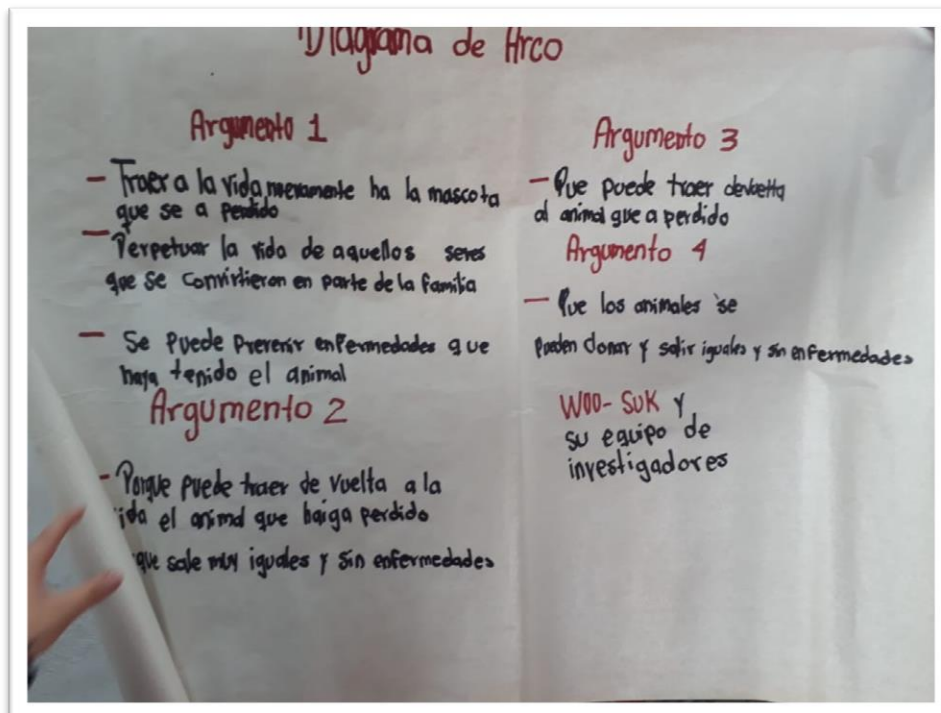 Diagrama de Arco
Argumento 1
- Traer a la vida nuevamente ha la mascota
que se a perdido
- Perpetuar la vida de aquellos seres
que se convirtieron en parte de la familia
- Se puede prevenir enfermedades que
haya tenido el animal
Argumento 2
- Porque puede traer de vuelta a la
vida el animal que haiga perdido
que sale muy iguales y sin enfermedades
Argumento 3
- Que puede traer devuelta
al animal que a perdido
Argumento 4
- Que los animales se
pueden clonar y salir iguales y sin enfermedades
Woo-SuK y
su equipo de
investigadores